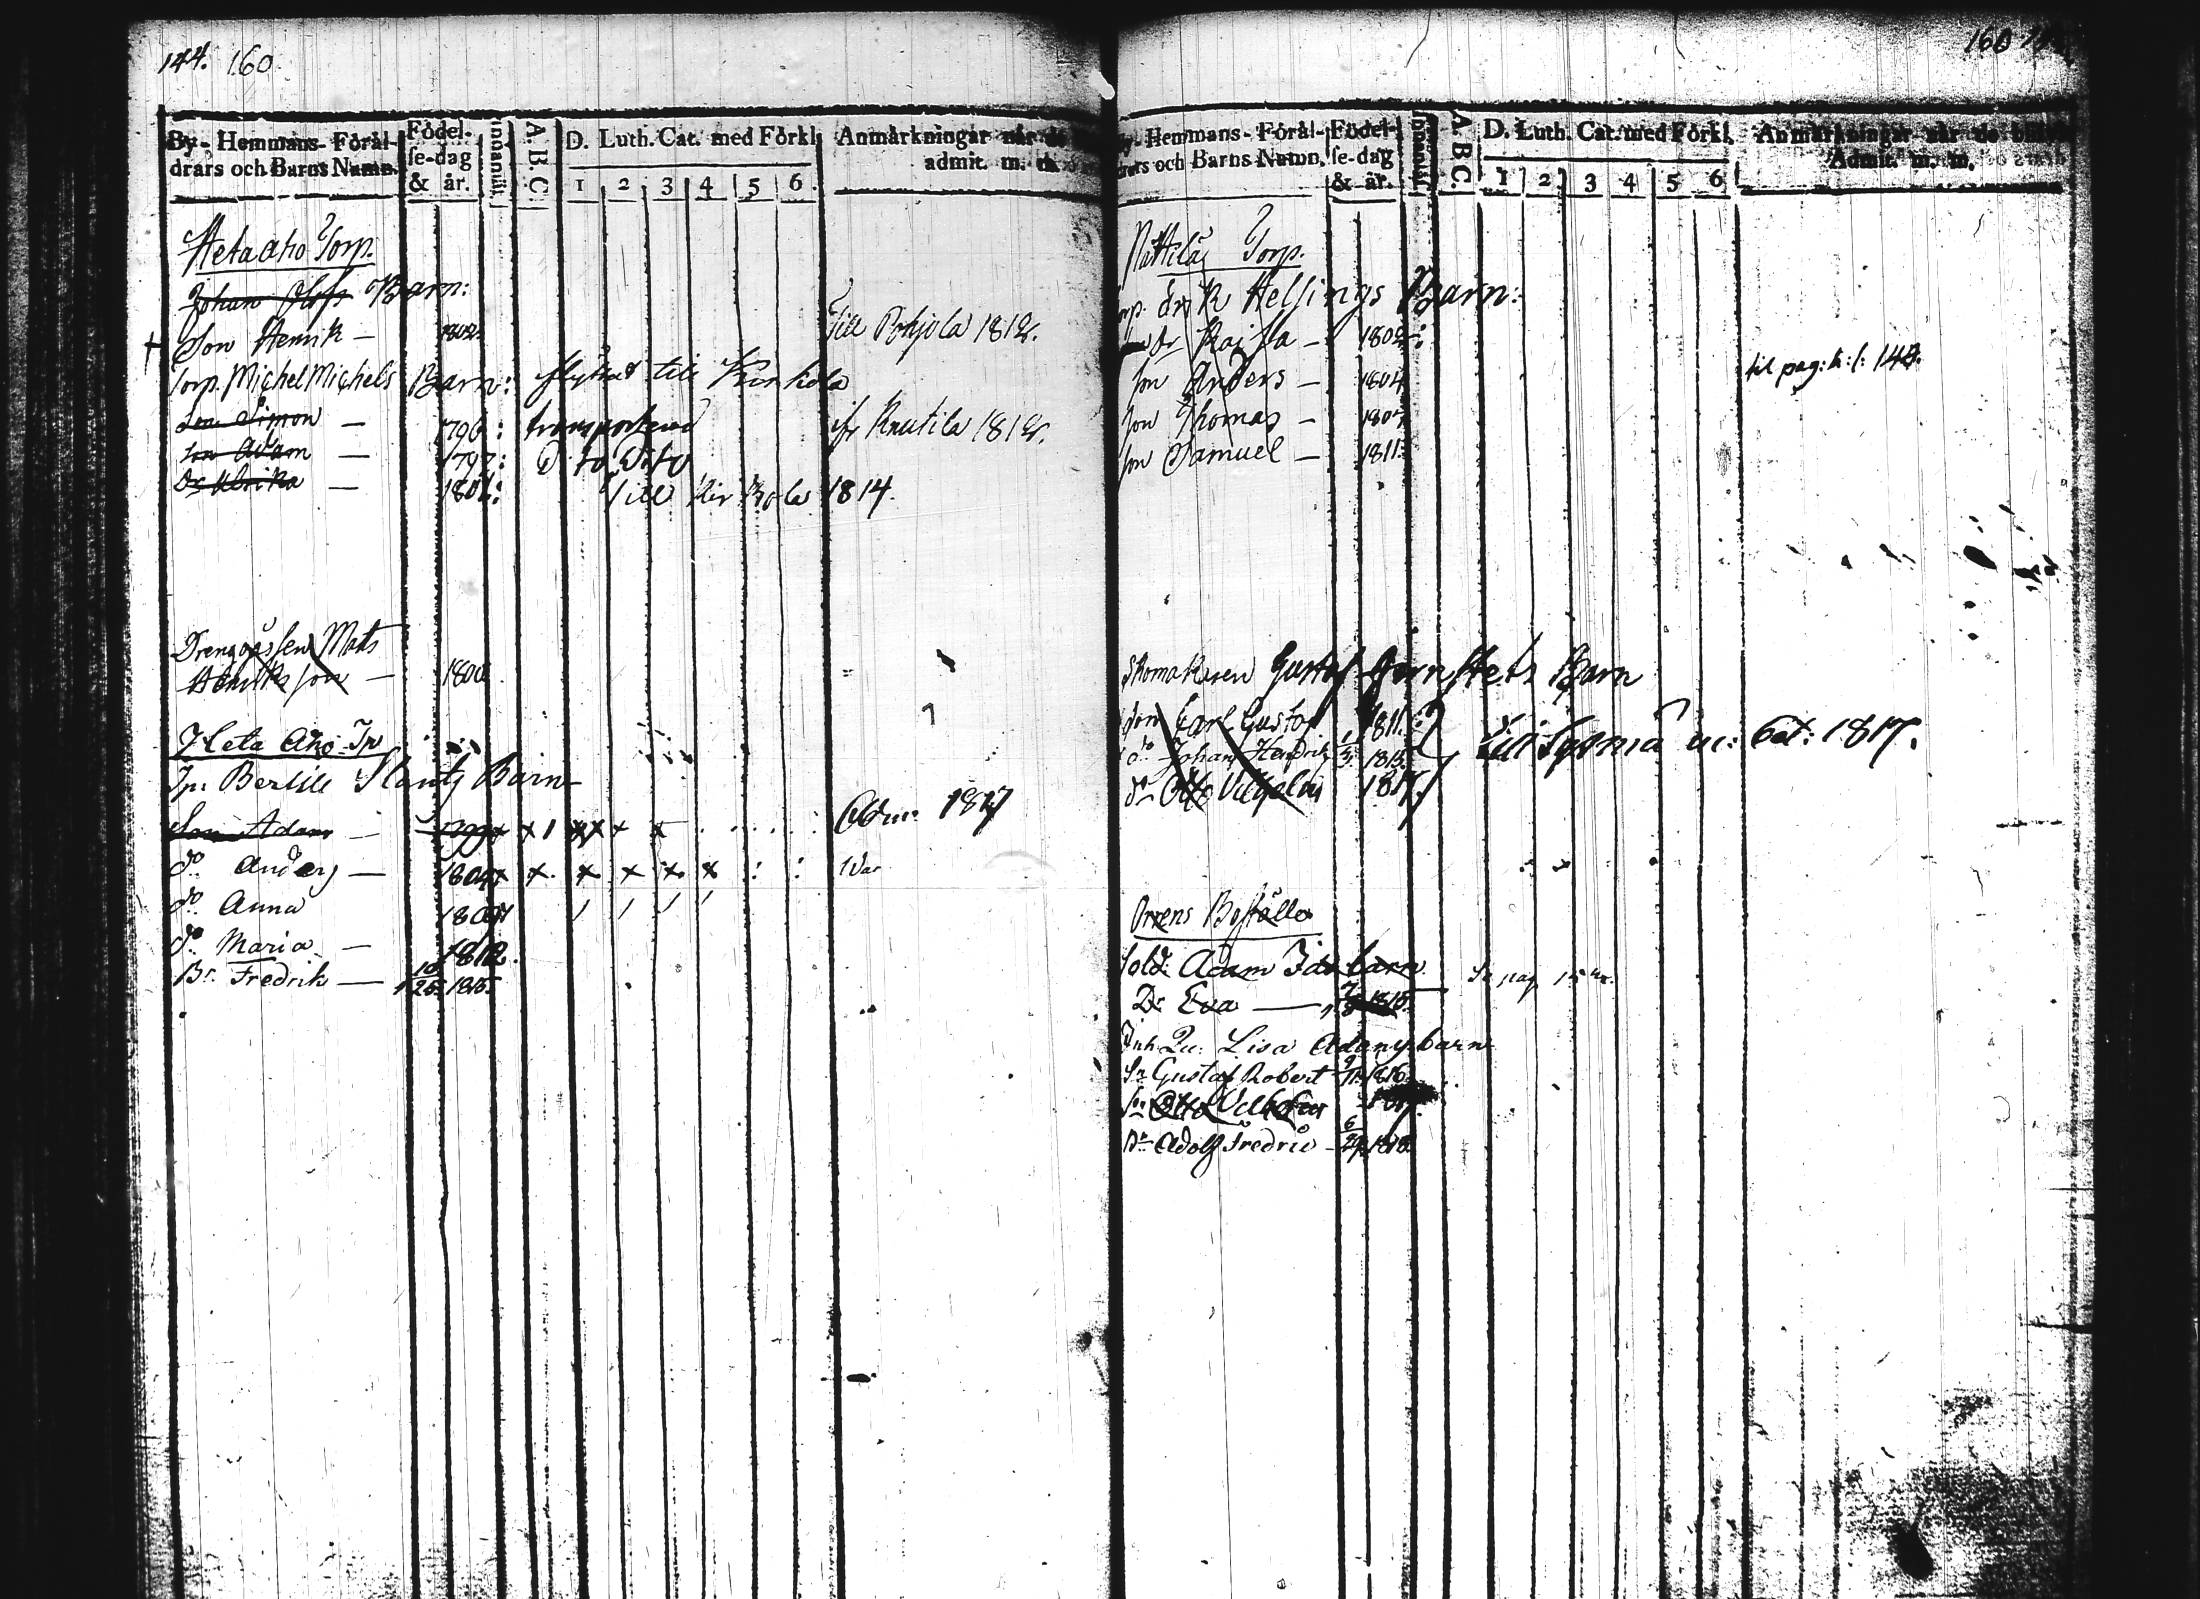 144. 160
By- Hemmans- Föräl-
drars och Barns Namn.
Födel-
se-dag
& år.
Innanläs.
A. B. C.
D. Luth. Cat. med Förkl.
1 2 3 4 5 6.
Anmärkningar när de
admit. m. m.
Hetaaho Torp.
Johan Olofs Barn:
Son Henrik — 1802. Till Pohjola 1812.
Torp. Michel Michels Barn: flyttat till Kirkola
Son Simon — 1796: transporterad ifr Knutila 1812.
Son Adam — 1797: Dito Dito
Dr Ulrika — 1801: Till Kirkola 1814.
Drenggåssen Mats
Henriksson — 1800
Heta Aho Tp
Tp: Bertill Slantz Barn
Son Adam — 1799 Adm: 1817
do Anders — 1804
do Anna
do Maria — 1812.
Br. Fredrik — 10/25 1815.
160
By- Hemmans- Föräl-
drars och Barns Namn.
Födel-
se-dag
& år.
Innanläs.
A. B. C.
D. Luth. Cat. med Förkl.
1 2 3 4 5 6
Anmärkningar när de blifvit
Admit. m. m.
Mattila Torp.
Torp. Erik Helsings Barn:
Dr Kajsa — 1802: til pag: h: l: 143.
Son Anders — 1804
Son Thomas — 1807
Son Samuel — 1811:
Skomakaren Gustaf Barn
Son Carl Gustaf 1811.
do Johan Hendrik 1813. Till 1817.
do Otto Vilhelm 1817.
Orrens Boställe
Sold: Adam barn
Dr Eva — 1815. Se pag
Inh Qu: Lisa Adams barn
Sn Gustaf Robert 9/11 1816
Son Otto Vilhelm
Sn Adolf Fredric — 6/29 1818